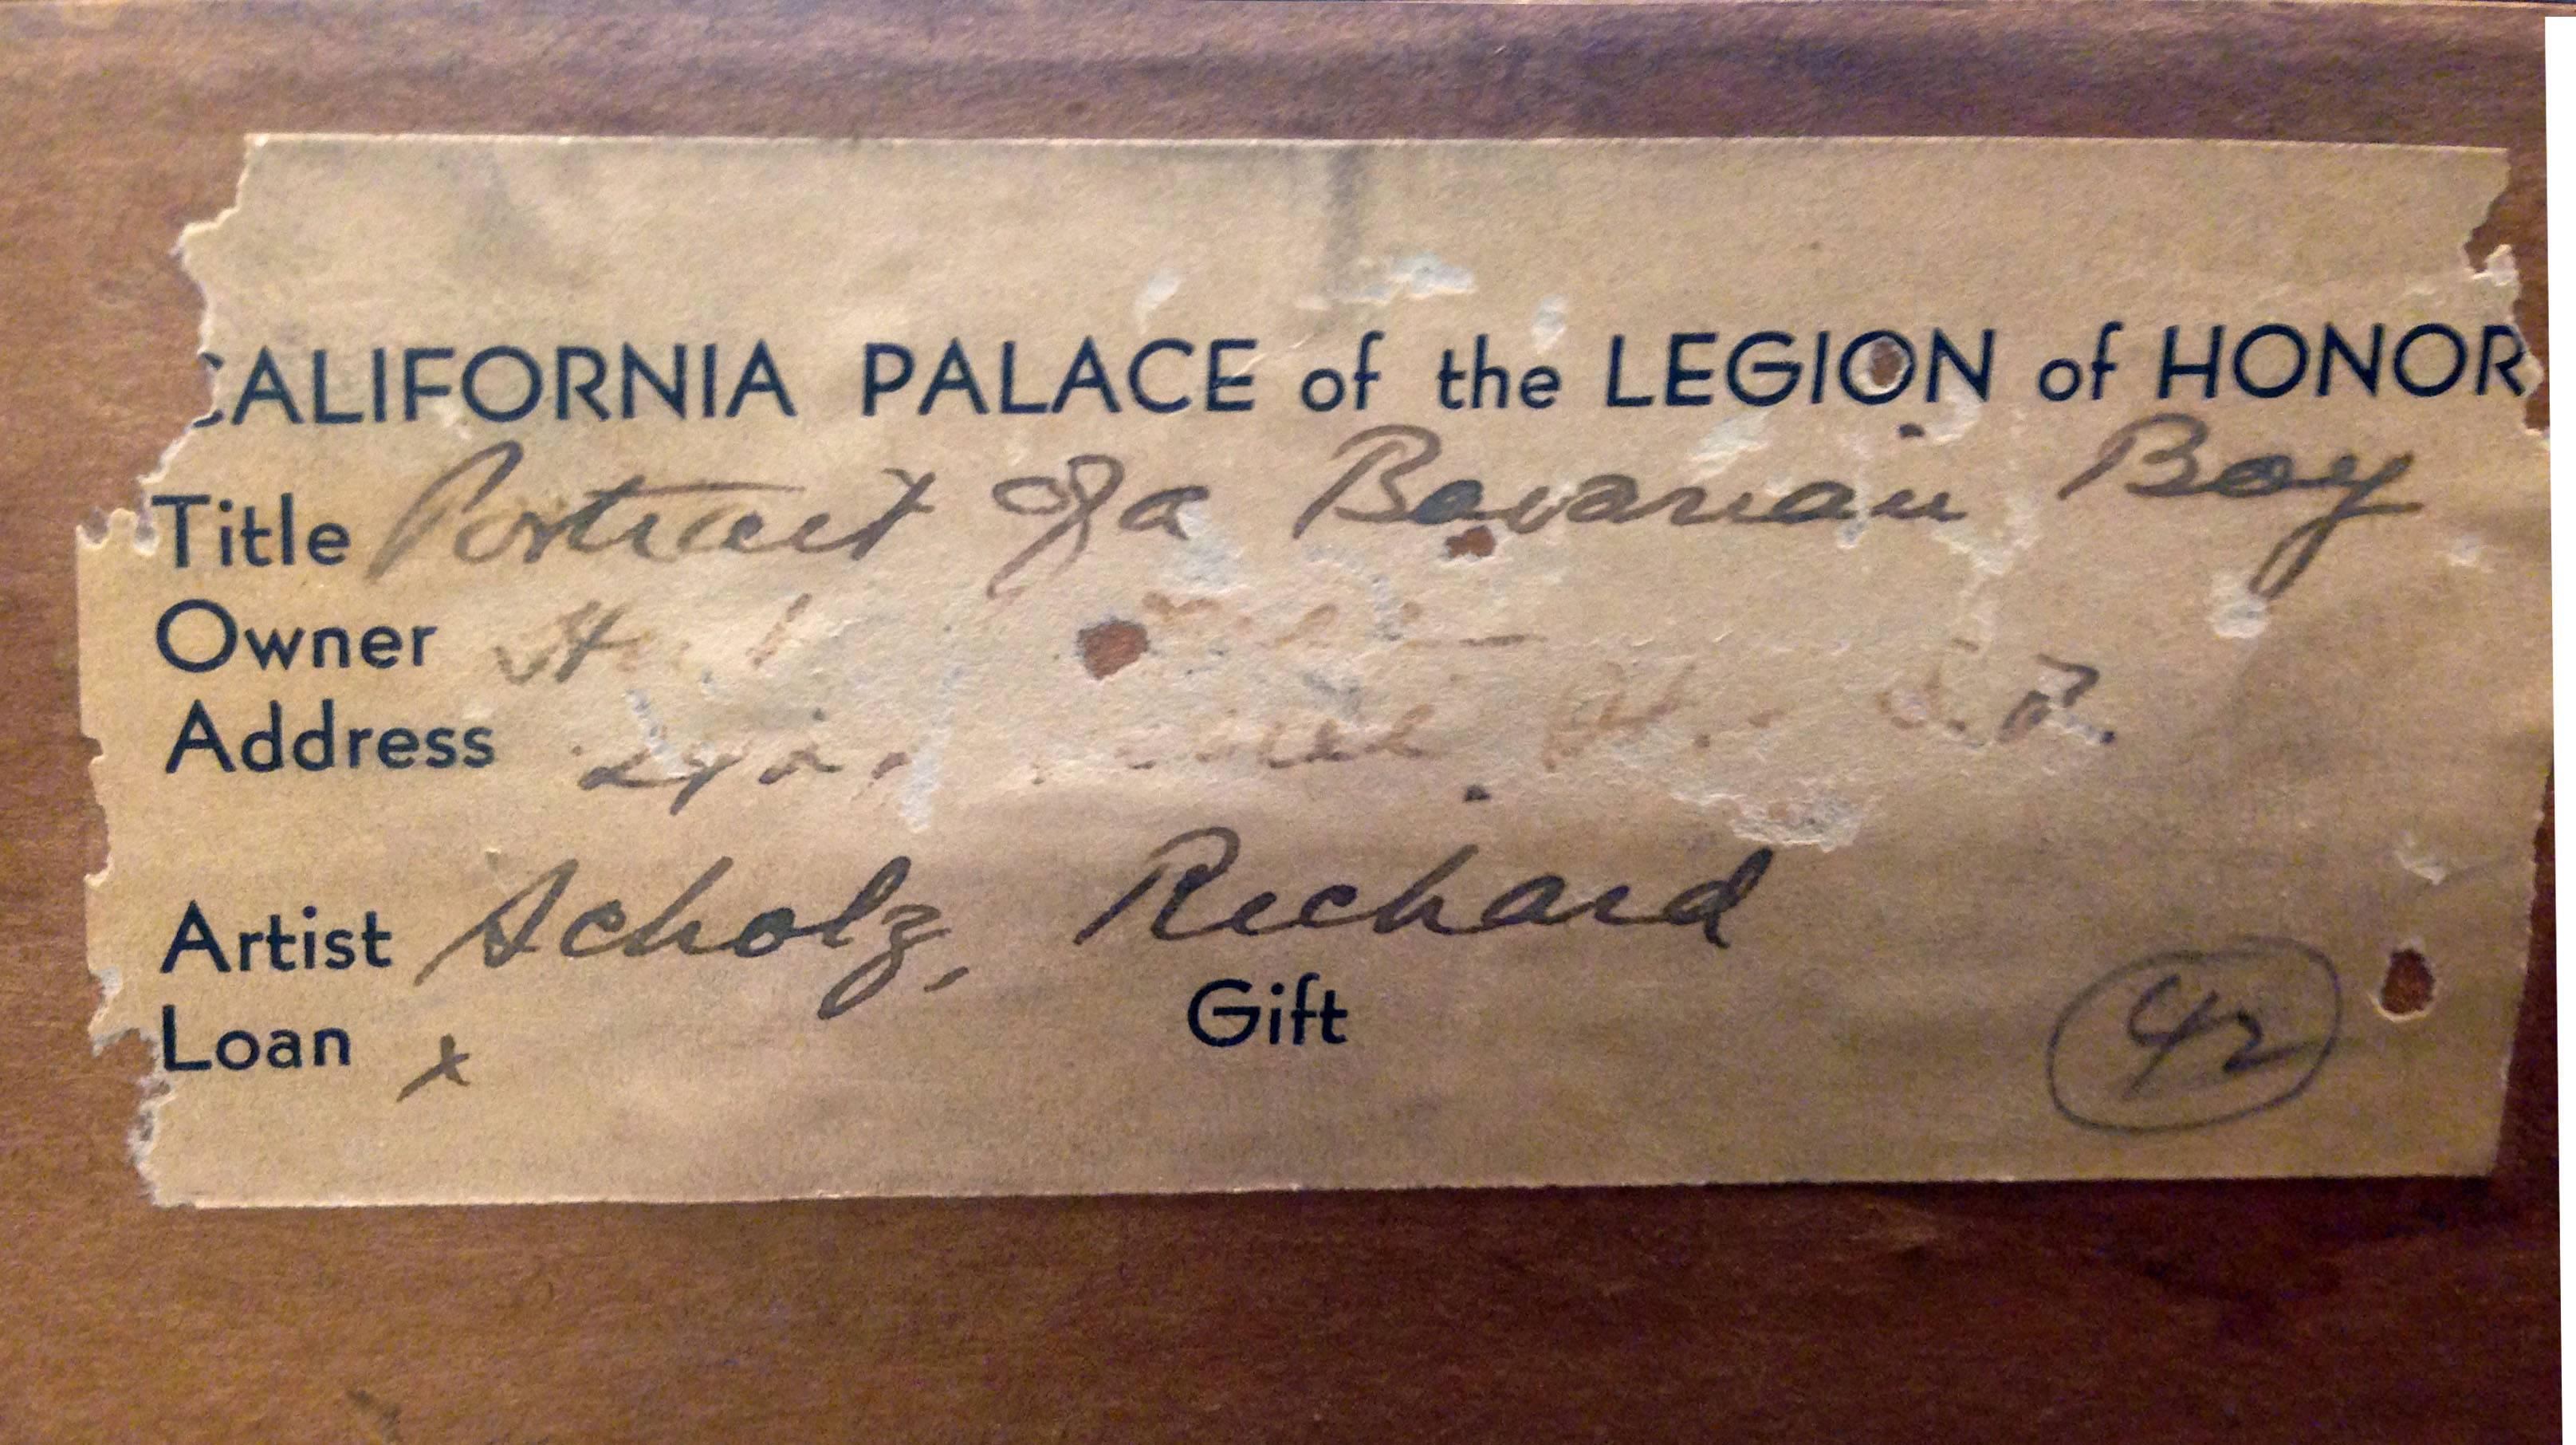 CALIFORNIA PALACE of the LEGION of HONOR
Title Portrait of a Bavarian Boy
Owner
Address
Artist Scholz, Richard
Loan x Gift
42